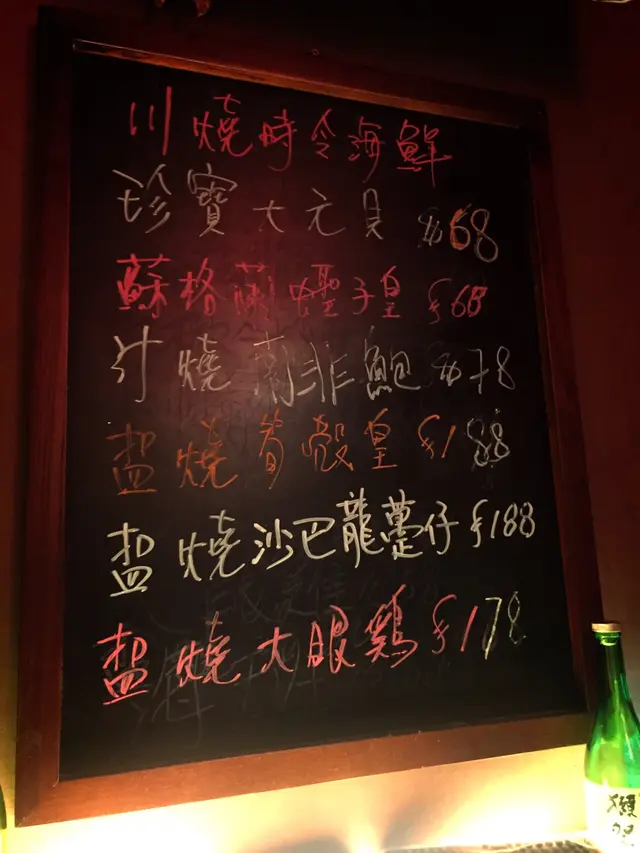 川燒時令海鮮
珍寶大元貝 $68
蘇格蘭蟶子皇 $68
汁燒南非鮑 $78
塩燒筍殼皇 $188
塩燒沙巴龍躉仔 $188
塩燒大眼鷄 $178
獺祭